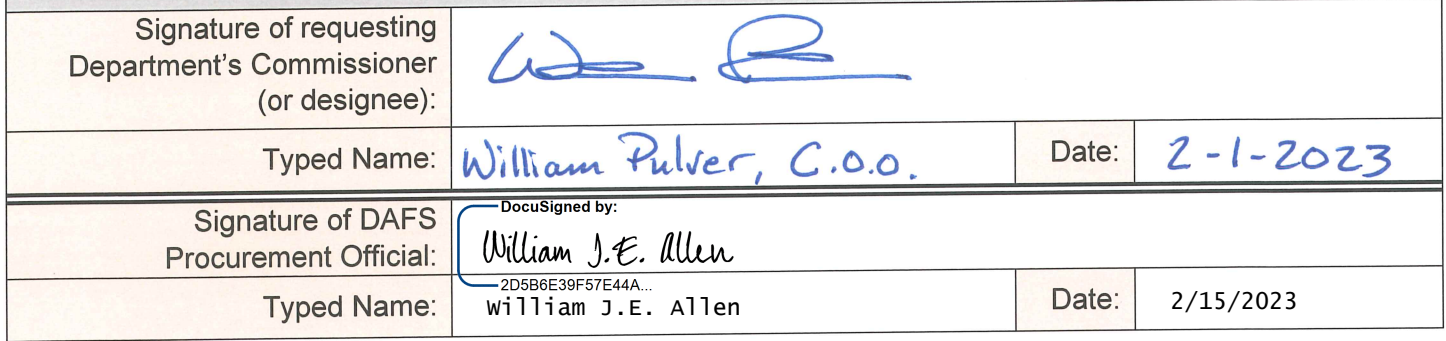 Signature of requesting
Department's Commissioner
(or designee):
Typed Name: William Pulver, C.O.O. Date: 2-1-2023
Signature of DAFS
Procurement Official:
DocuSigned by:
William J.E. Allen
2D5B6E39F57E44A...
Typed Name: William J.E. Allen Date: 2/15/2023